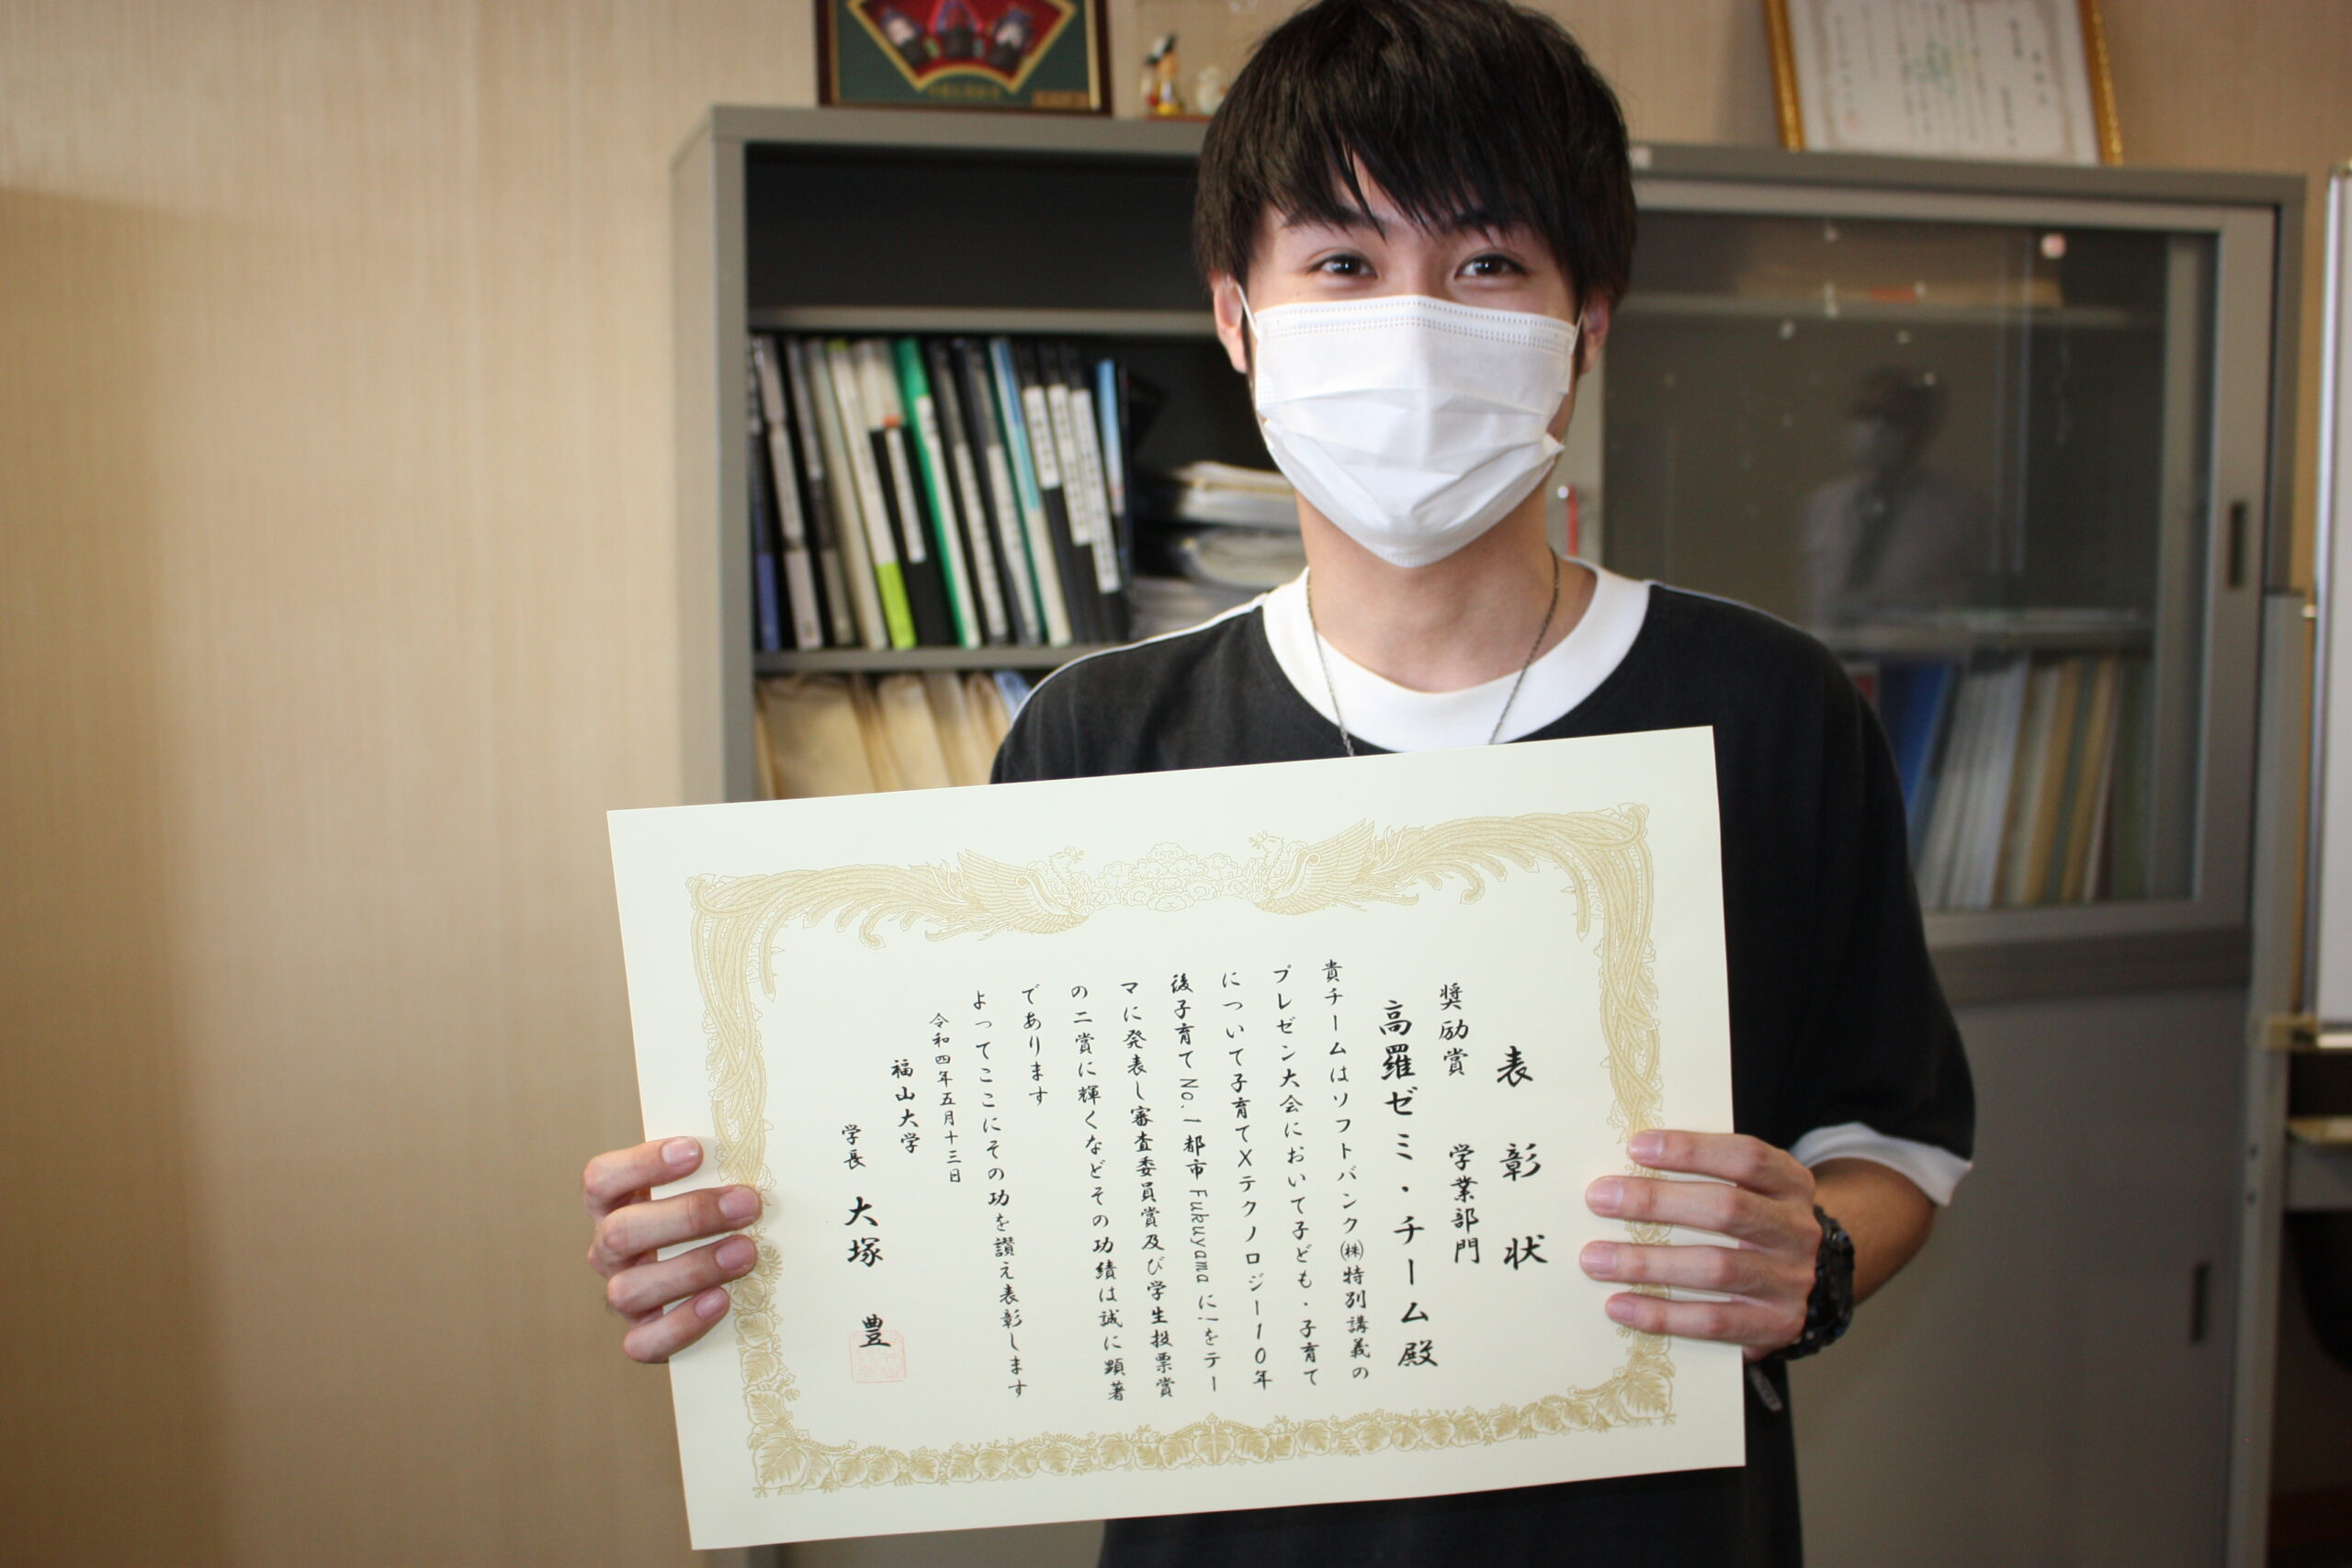 表彰状
奨励賞 学業部門
高羅ゼミ・チーム殿
貴チームはソフトバンク㈱特別講義の
プレゼン大会において子ども・子育て
について子育て×テクノロジー10年
後子育てNo.1都市Fukuyamaに!をテー
マに発表し審査委員賞及び学生投票賞
の二賞に輝くなどその功績は誠に顕著
であります
よってここにその功を讃え表彰します
令和四年五月十三日
福山大学
学長 大塚 豊